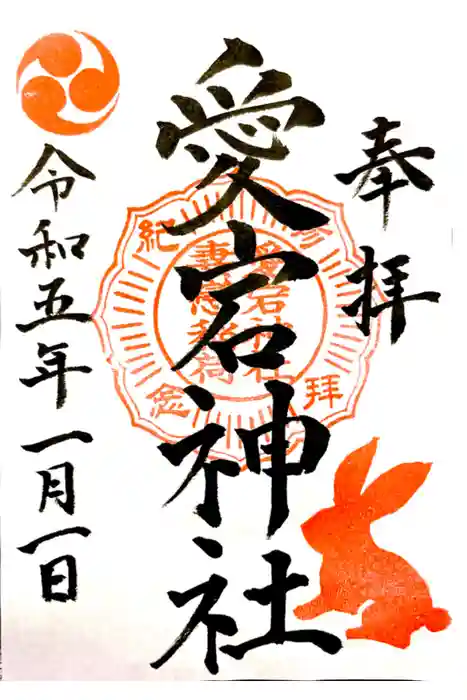 奉拝
愛宕神社
令和五年一月一日
参拝紀念
愛宕神社